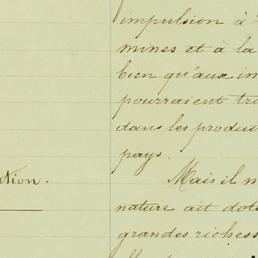 impulsion à
mines et à la
bien qu'aux in
pourraient tro
dans les produi
pays.
Mais il n
ction.
nature ait dot
grandes richess